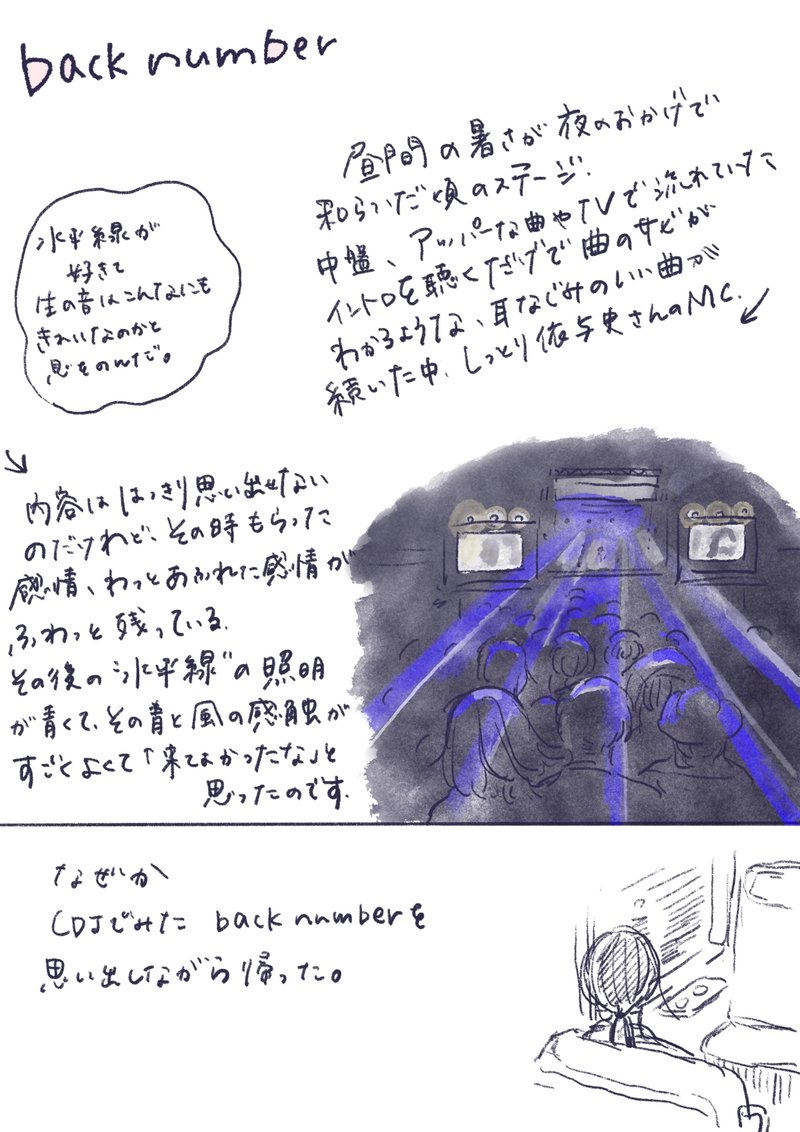 back number
昼間の暑さが夜のおかげで
和らいだ頃のステージ.
中盤、アッパーな曲やTVで流れていた
イントロを聴くだけで曲のサビが
わかるような、耳なじみのいい曲が
続いた中、しっとり依与吏さんのMC.
水平線が
好きで
生の音はこんなにも
きれいなのかと
息をのんだ。
内容ははっきり思い出せない
のだけれど、その時もらった
感情、わっとあふれた感情が
ふわっと残っている.
その後の"水平線"の照明
が青くて、その青と風の感触が
すごくよくて「来てよかったな」と
思ったのです.
なぜか
CDJでみた back numberを
思い出しながら帰った。